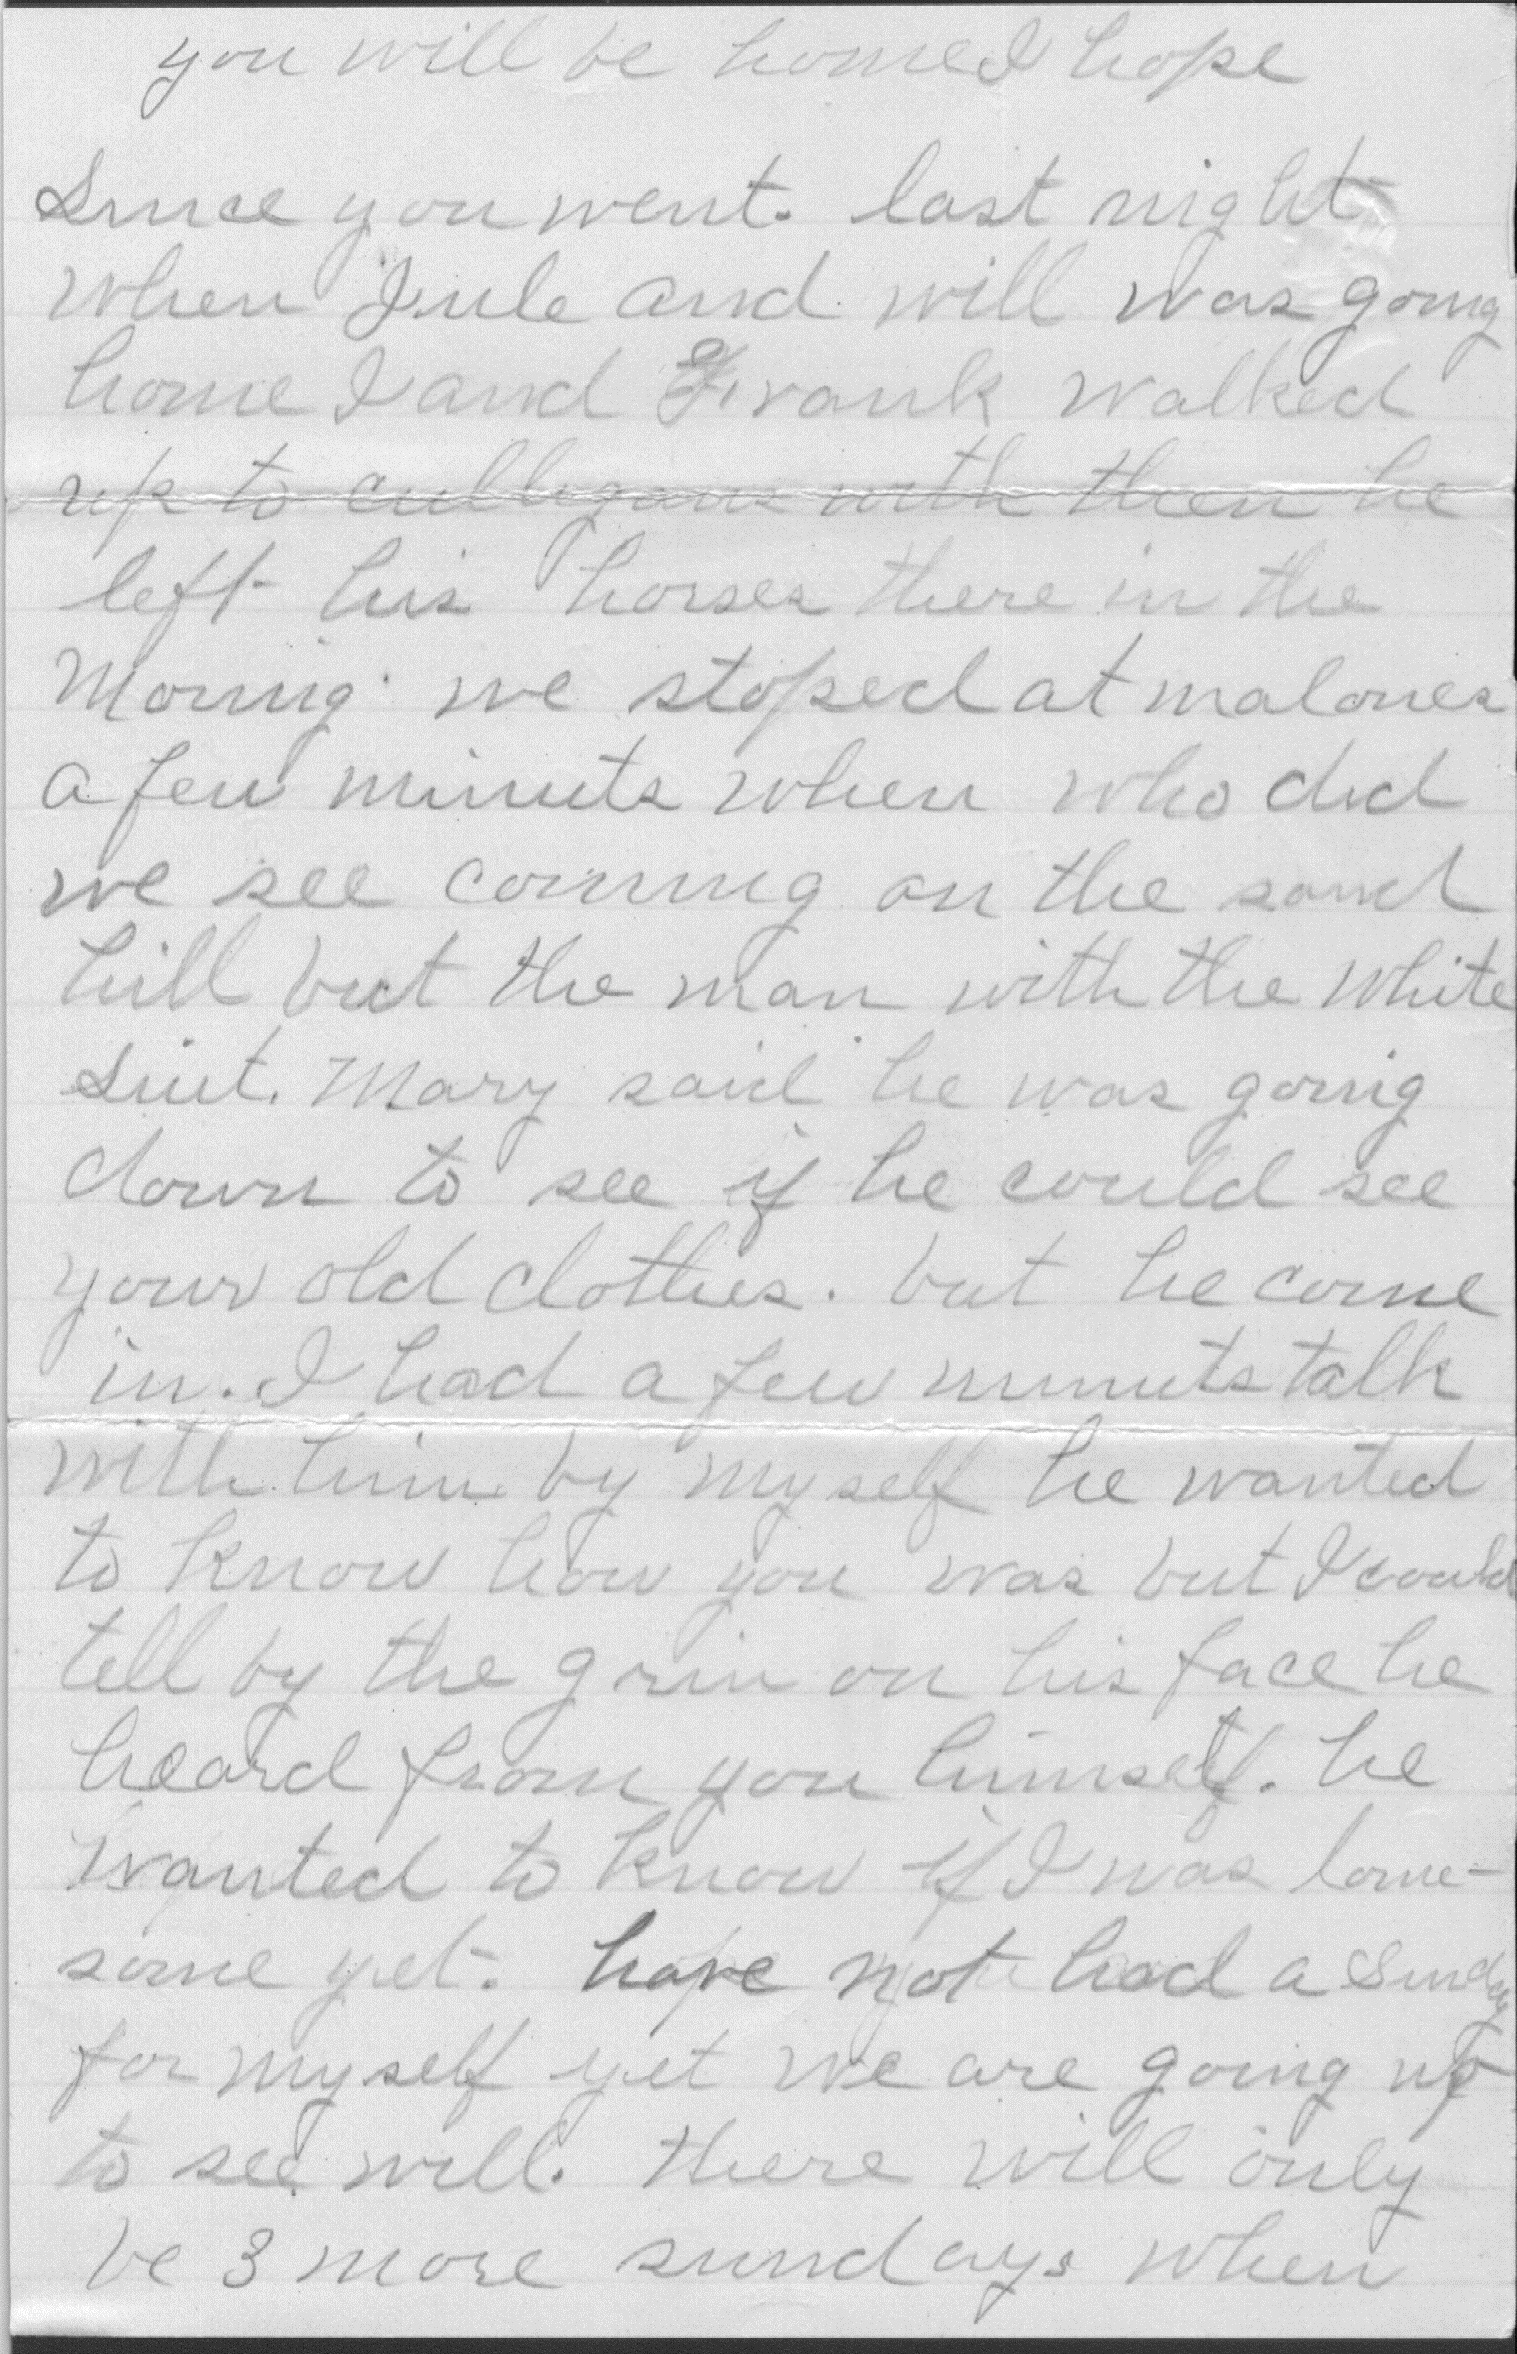 you will be home I hope
Since you went. last night
when Jule and will was going
home I and Frank walked
up to culligans with them he
left his horses there in the
Morning. we stoped at malones
a few minuts when who did
we see coming on the sand
hill but the man with the white
Suit. Mary said he was going
down to see if he could see
your old clothes. but he come
in. I had a few minuts talk
with him by myself he wanted
to know how you was but I could
tell by the grin on his face he
heard from you himself. he
wanted to know if I was lone-
some yet. have not had a Sunday
for myself yet we are going up
to see will. there will only
be 3 more sundays when